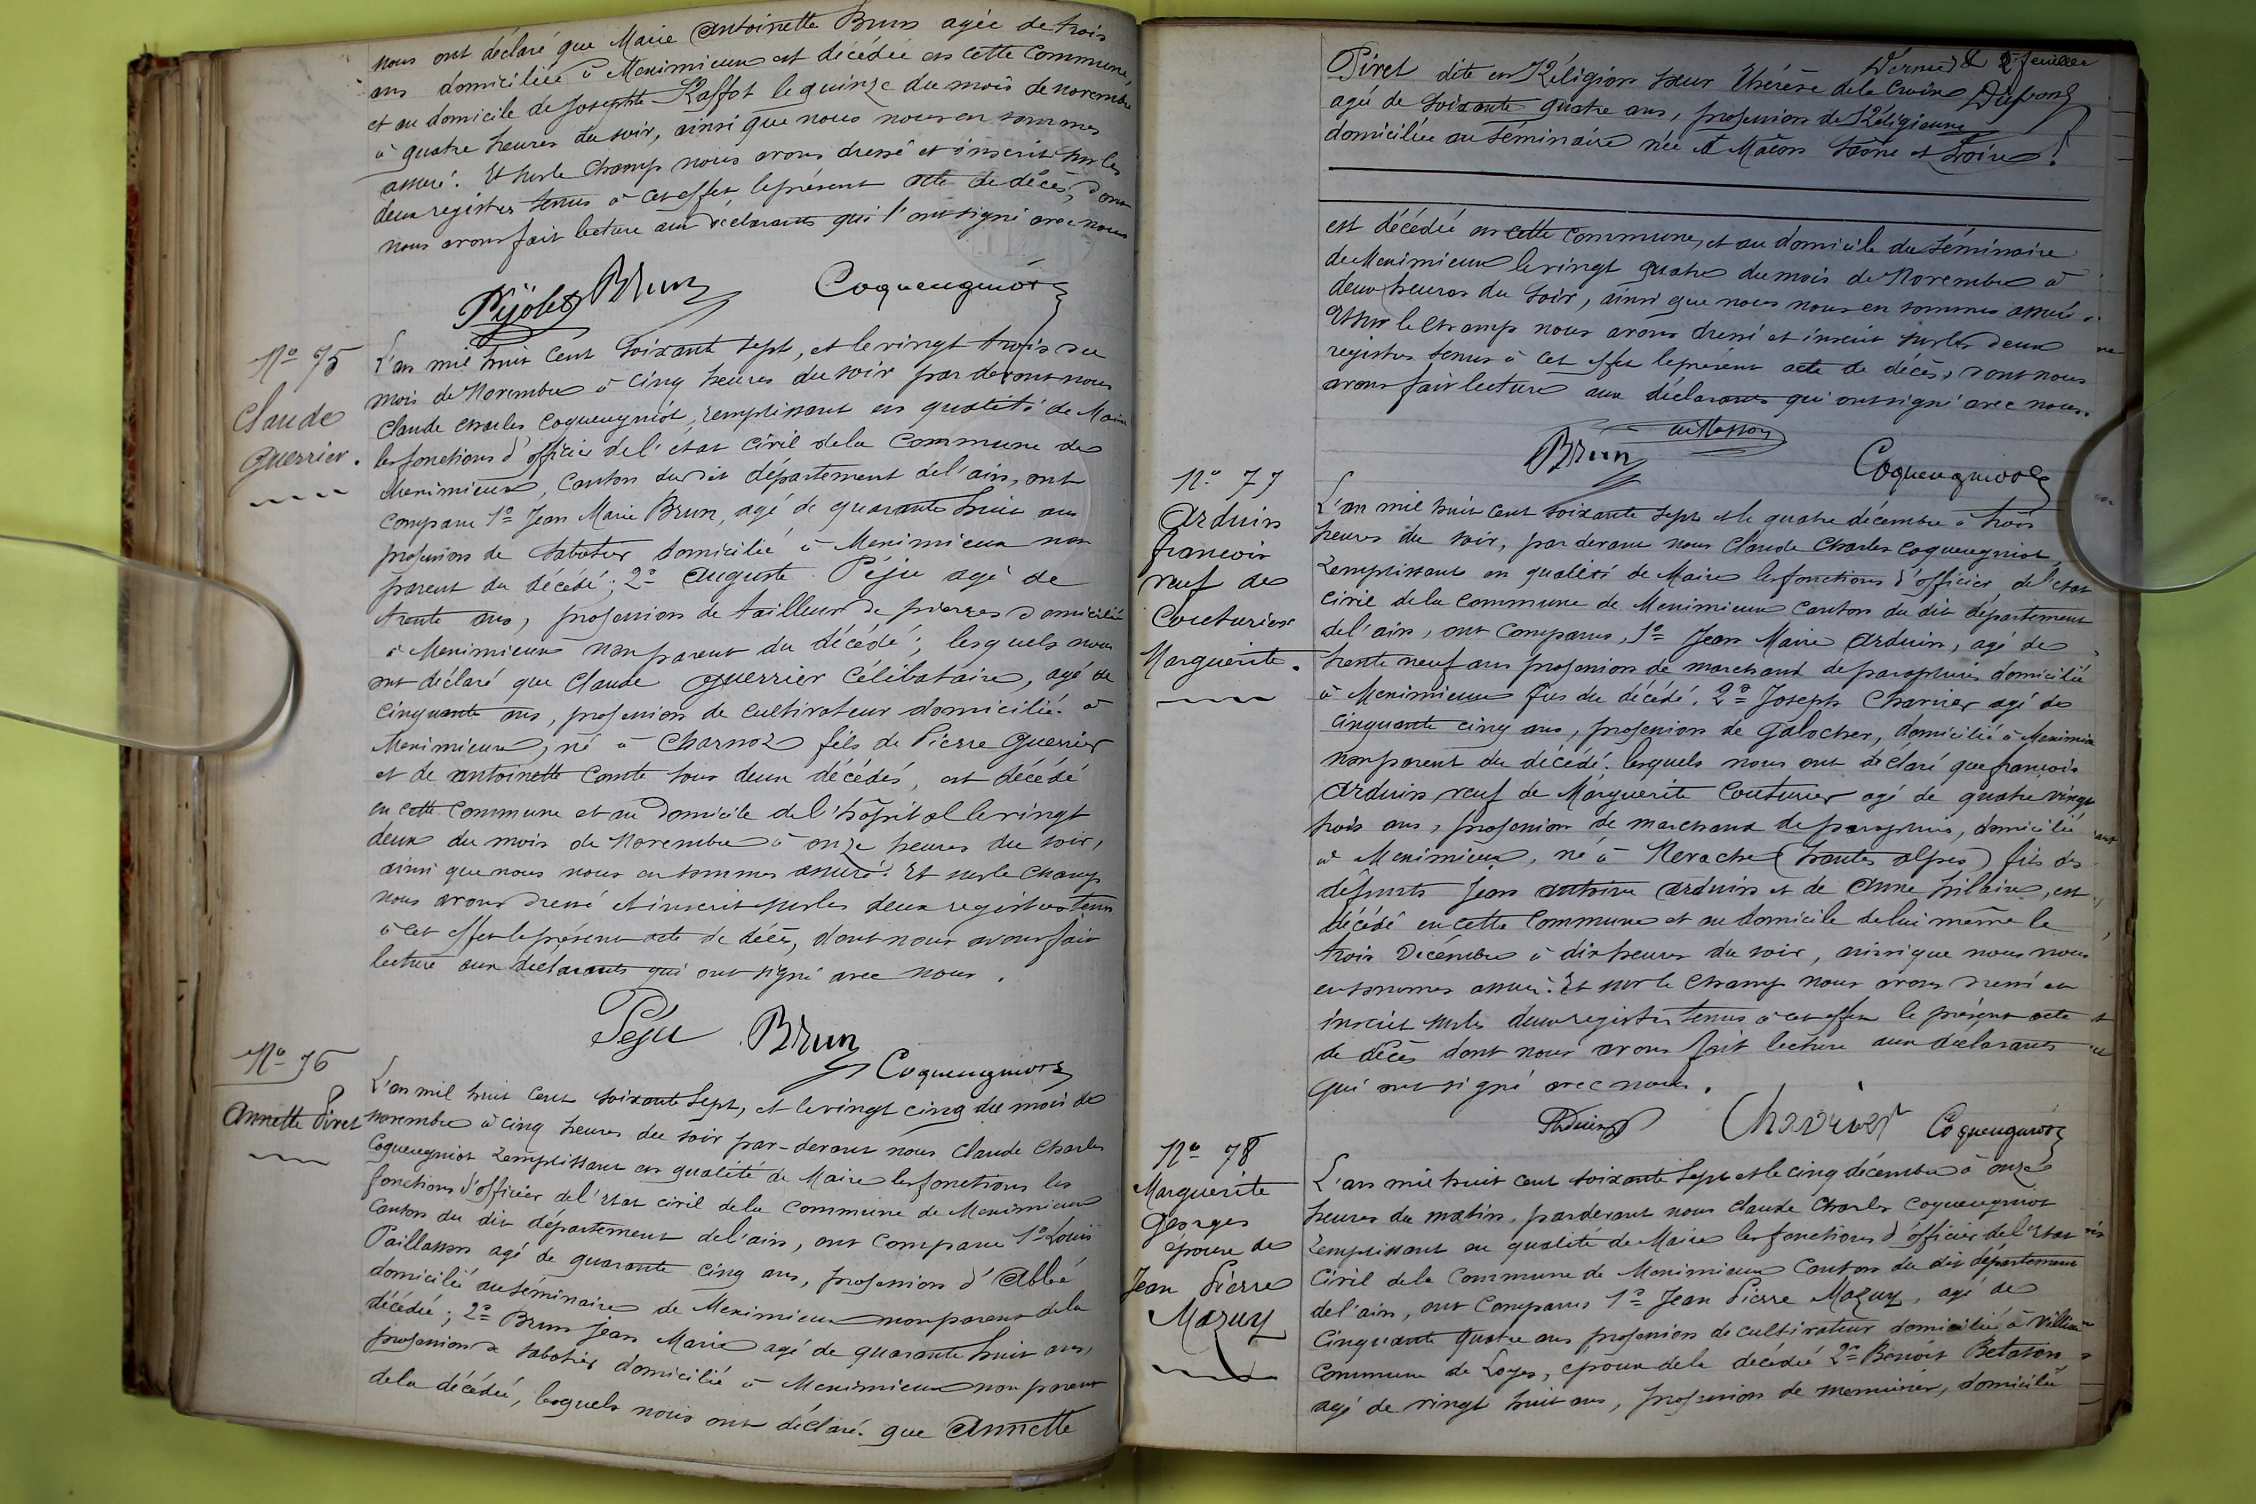 nous ont déclaré que Marie Antoinette Brun agée de trois
ans domiciliée à Meximieux est décédée en cette commune,
et au domicile de Josephte Raffot le quinze du mois de novembre
à quatre heures du soir, ainsi que nous nous en sommes
assuré. Et sur le champ nous avons dressé et inscrit sur les
deux registres tenus à cet effet le présent acte de décès, dont
nous avons fait lecture aux déclarants qui l'ont signé avec nous
Pijolet Brun Coqueugniot
No 75
Claude
Guerrier.
L'an mil huit cent soixante sept, et le vingt trois du
mois de Novembre à cinq heures du soir par devant nous
Claude Charles Coqueugniot, remplissant en qualité de Maire
les fonctions d'officier de l'etat civil de la commune de
Meximieux, canton du dit département de l'ain, ont
comparu 1o Jean Marie Brun, agé de quarante huit ans
profession de sabotier domicilié à Meximieux non
parent du décédé; 2o Auguste Péju agé de
trente ans, profession de tailleur de pierres domicilié
à Meximieux non parent du décédé; lesquels nous
ont déclaré que Claude Guerrier Célibataire, agé de
cinquante ans, profession de cultivateur domicilié à
Meximieux, né à Charnoz fils de Pierre Guerrier
et de antoinette Comte tous deux décédés, est décédé
en cette commune et au domicile de l'hôpital le vingt
deux du mois de Novembre à onze heures du soir,
ainsi que nous nous en sommes assuré. Et sur le champ
nous avons dressé et inscrit sur les deux registres tenus
à cet effet le présent acte de décès, dont nous avons fait
lecture aux déclarants qui ont signé avec nous.
Péju Brun
Coqueugniot
No 76
Annette Piret
L'an mil huit cent soixante sept, et le vingt cinq du mois de
novembre à cinq heures du soir par-devant nous Claude Charles
Coqueugniot remplissant en qualité de Maire les fonctions les
fonctions d'officier de l'Etat civil de la commune de Meximieux
Canton du dit département de l'ain, ont comparu 1o Louis
Paillasson agé de quarante cinq ans, profession d'Abbé
domicilié au séminaire de Meximieux non parent de la
décédée; 2o Brun Jean Marie agé de quarante huit ans,
profession de sabotier domicilié à Meximieux non parent
de la décédée, lesquels nous ont déclaré que Annette
Dernier & 2e feuillet
Dupont
Piret dite en Réligion Sœur Thérèse de la Croix
agée de soixante quatre ans, profession de Réligieuse
domiciliée au Séminaire née à Mâcon Saône et Loire.
est décédée en cette commune, et au domicile du Séminaire
de Meximieux le vingt quatre du mois de Novembre à
deux heures du soir, ainsi que nous nous en sommes assuré.
Et sur le champ nous avons dressé et inscrit sur les deux
registres tenus à cet effet le présent acte de décès, dont nous
avons fait lecture aux déclarants qui ont signé avec nous.
Brun Coqueugniot
No 77
Arduin
francois
veuf de
Couturier
Marguerite.
L'an mil huit cent soixante sept et le quatre décembre à trois
heures du soir, par devant nous Claude Charles Coqueugniot,
remplissant en qualité de Maire les fonctions d'officier de l'etat
civil de la commune de Meximieux canton du dit département
de l'ain, ont comparus, 1o Jean Marie Arduin, agé de
trente neuf ans profession de marchand de parapluies domicilié
à Meximieux fils du décédé. 2o Joseph Charvier agé de
cinquante cinq ans, profession de Galocher, domicilié à Meximieux
non parent du décédé. lesquels nous ont déclaré que françois
Arduin veuf de Marguerite Couturier agé de quatre vingt
trois ans, profession de marchand de parapluie, domicilié
à Meximieux, né à Nevache (hautes alpes) fils des
défunts Jean antoine Arduin et de Anne hilaire, est
décédé en cette commune et au domicile de lui même le
trois Décembre à dix heures du soir, ainsi que nous nous
en sommes assuré. Et sur le champ nous avons dressé et
inscrit sur les deux registres tenus à cet effet le présent acte
de décès dont nous avons fait lecture aux déclarants
qui ont signé avec nous.
Arduin Charvier Coqueugniot
No 78
Marguerite
Georges
épouse de
Jean Pierre
Mazuy
L'an mil huit cent soixante sept et le cinq décembre à onze
heures du matin, par devant nous Claude Charles Coqueugniot
remplissant en qualité de Maire les fonctions d'officier de l'Etat
Civil de la commune de Meximieux Canton du dit département
de l'ain, ont comparus 1o Jean Pierre Mazuy, agé de
Cinquante quatre ans profession de cultivateur domicilié à
commune de Loyes, époux de la décédée 2o Benoit Betaton
agé de vingt huit ans, profession de menuisier, domicilié